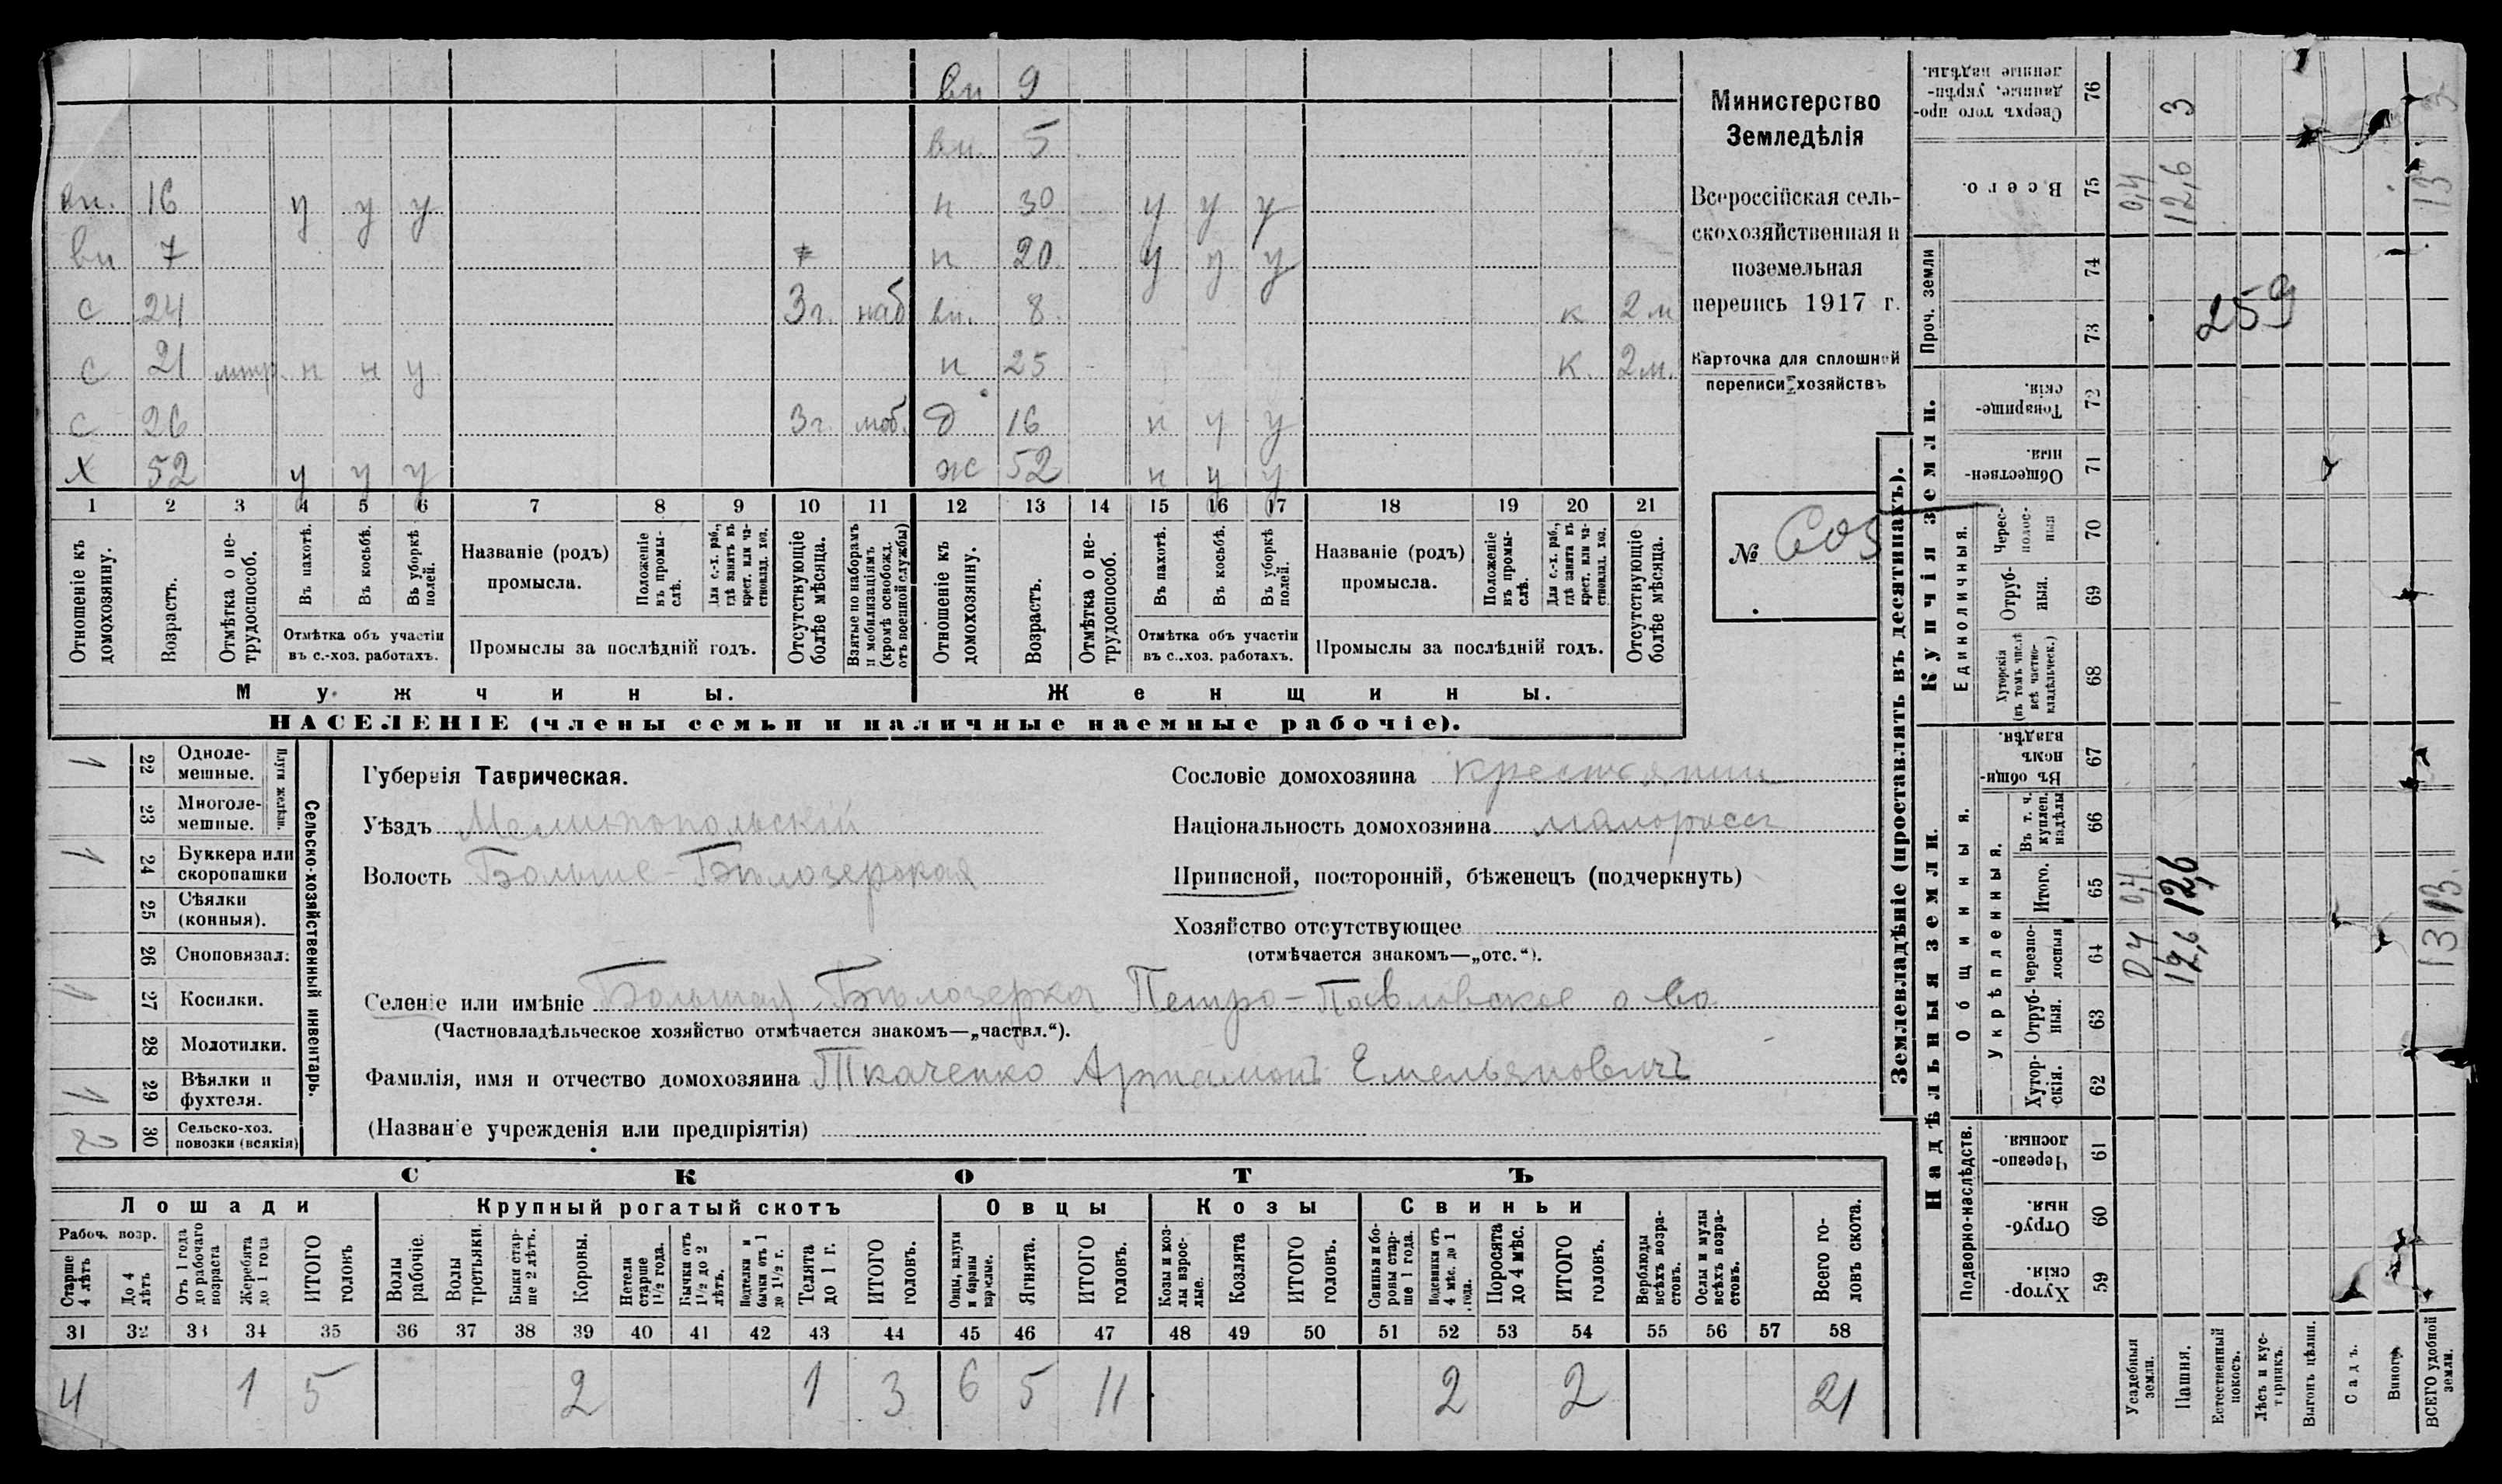 вн 9
вн. 5
вн. 16 у у у н 30 у у у
вн 7 н 20 у у у
с 24 3 г. наб вн. 8 к 2 м
с 21 н н у н 25 к. 2 м.
с 26 3 г. моб. д 16 н у у
х 52 у у у ж 52 н у у
1 2 3 4 5 6 7 8 9 10 11 12 13 14 15 16 17 18 19 20 21
Отношеніе къ домохозяину.
Возрастъ.
Отмѣтка о нетрудоспособ.
Въ пахотѣ.
Въ косьбѣ.
Въ уборкѣ полей.
Отмѣтка объ участіи въ с.-хоз. работахъ.
Названіе (родъ) промысла.
Положеніе въ промыслѣ.
Для с.-х. раб., гдѣ занятъ въ крест. или частновлад. хоз.
Промыслы за послѣдній годъ.
Отсутствующіе болѣе мѣсяца.
Взятые по наборамъ и мобилизаціямъ (кромѣ освобожд. отъ военной службы)
Отношеніе къ домохозяину.
Возрастъ.
Отмѣтка о нетрудоспособ.
Въ пахотѣ.
Въ косьбѣ.
Въ уборкѣ полей.
Отмѣтка объ участіи въ с.-хоз. работахъ.
Названіе (родъ) промысла.
Положеніе въ промыслѣ.
Для с.-х. раб., гдѣ занята въ крест. или частновлад. хоз.
Промыслы за послѣдній годъ.
Отсутствующіе болѣе мѣсяца.
Мужчины. Женщины.
НАСЕЛЕНІЕ (члены семьи и наличные наемные рабочіе).
Министерство
Земледѣлія
Всероссійская сель-
скохозяйственная и
поземельная
перепись 1917 г.
Карточка для сплошной
переписи хозяйствъ
№ 605
Сельско-хозяйственный инвентарь.
Плуги желѣзн.
1 22 Одноле-мешные.
23 Многоле-мешные.
1 24 Буккера или скоропашки
25 Сѣялки (конныя).
26 Сноповязал.
1 27 Косилки.
28 Молотилки.
1 29 Вѣялки и фухтеля.
2 30 Сельско-хоз. повозки (всякія)
Губернія Таврическая.
Уѣздъ Мелитопольскій
Волость Больше-Бѣлозерская
Сословіе домохозяина крестьянин
Національность домохозяина малоросс
Приписной, посторонній, бѣженецъ (подчеркнуть)
Хозяйство отсутствующее
(отмѣчается знакомъ—„отс.“).
Селеніе или имѣніе Большая Бѣлозерка Петро-Павловское о-во
(Частновладѣльческое хозяйство отмѣчается знакомъ—„частвл.“).
Фамилія, имя и отчество домохозяина Ткаченко Артамонъ Емельяновичъ
(Названіе учрежденія или предпріятія)
СКОТЪ
Лошади Крупный рогатый скотъ Овцы Козы Свиньи
Рабоч. возр.
Старше 4 лѣтъ
До 4 лѣтъ
Отъ 1 года до рабочаго возраста
Жеребята до 1 года
ИТОГО головъ
Волы рабочіе.
Волы третьяки.
Быки старше 2 лѣтъ.
Коровы.
Нетели старше 1 1/2 года.
Бычки отъ 1 1/2 до 2 лѣтъ.
Подтелки и бычки отъ 1 до 1 1/2 г.
Телята до 1 г.
ИТОГО головъ.
Овцы, валухи и бараны взрослые.
Ягнята.
ИТОГО головъ.
Козы и козлы взрослые.
Козлята
ИТОГО головъ.
Свиньи и боровы старше 1 года.
Подсвинки отъ 4 мѣс. до 1 года.
Поросята до 4 мѣс.
ИТОГО головъ.
Верблюды всѣхъ возрастовъ.
Ослы и мулы всѣхъ возрастовъ.
Всего головъ скота.
31 32 33 34 35 36 37 38 39 40 41 42 43 44 45 46 47 48 49 50 51 52 53 54 55 56 57 58
4 1 5 2 1 3 6 5 11 2 2 21
Землевладѣніе (проставлять въ десятинахъ).
Надѣльныя земли. Купчія земли. Проч. земли
Подворно-наслѣдств.
Общинныя.
Укрѣпленныя.
Единоличныя.
Сверхъ того проданные, укрѣпленные надѣлы. 76 3
Всего. 75 0,4 12,6 13
74
73
259
Товарищескія. 72
Общественныя. 71
Черезполосныя 70
Отрубныя. 69
Хуторскія (въ томъ числѣ всѣ частновладѣльческ.) 68
Въ общинномъ владѣн. 67
Въ т. ч. куплен. надѣлы 66
Итого. 65 0,4 12,6 13.
Черезполосныя 64 0,4 12,6 13
Отрубныя. 63
Хуторскія. 62
Черезполосныя. 61
Отрубныя. 60
Хуторскія. 59
Усадебныя земли.
Пашня.
Естественный покосъ.
Лѣсъ и кустарникъ.
Выгонъ цѣлин.
Садъ.
Виногр.
ВСЕГО удобной земли.